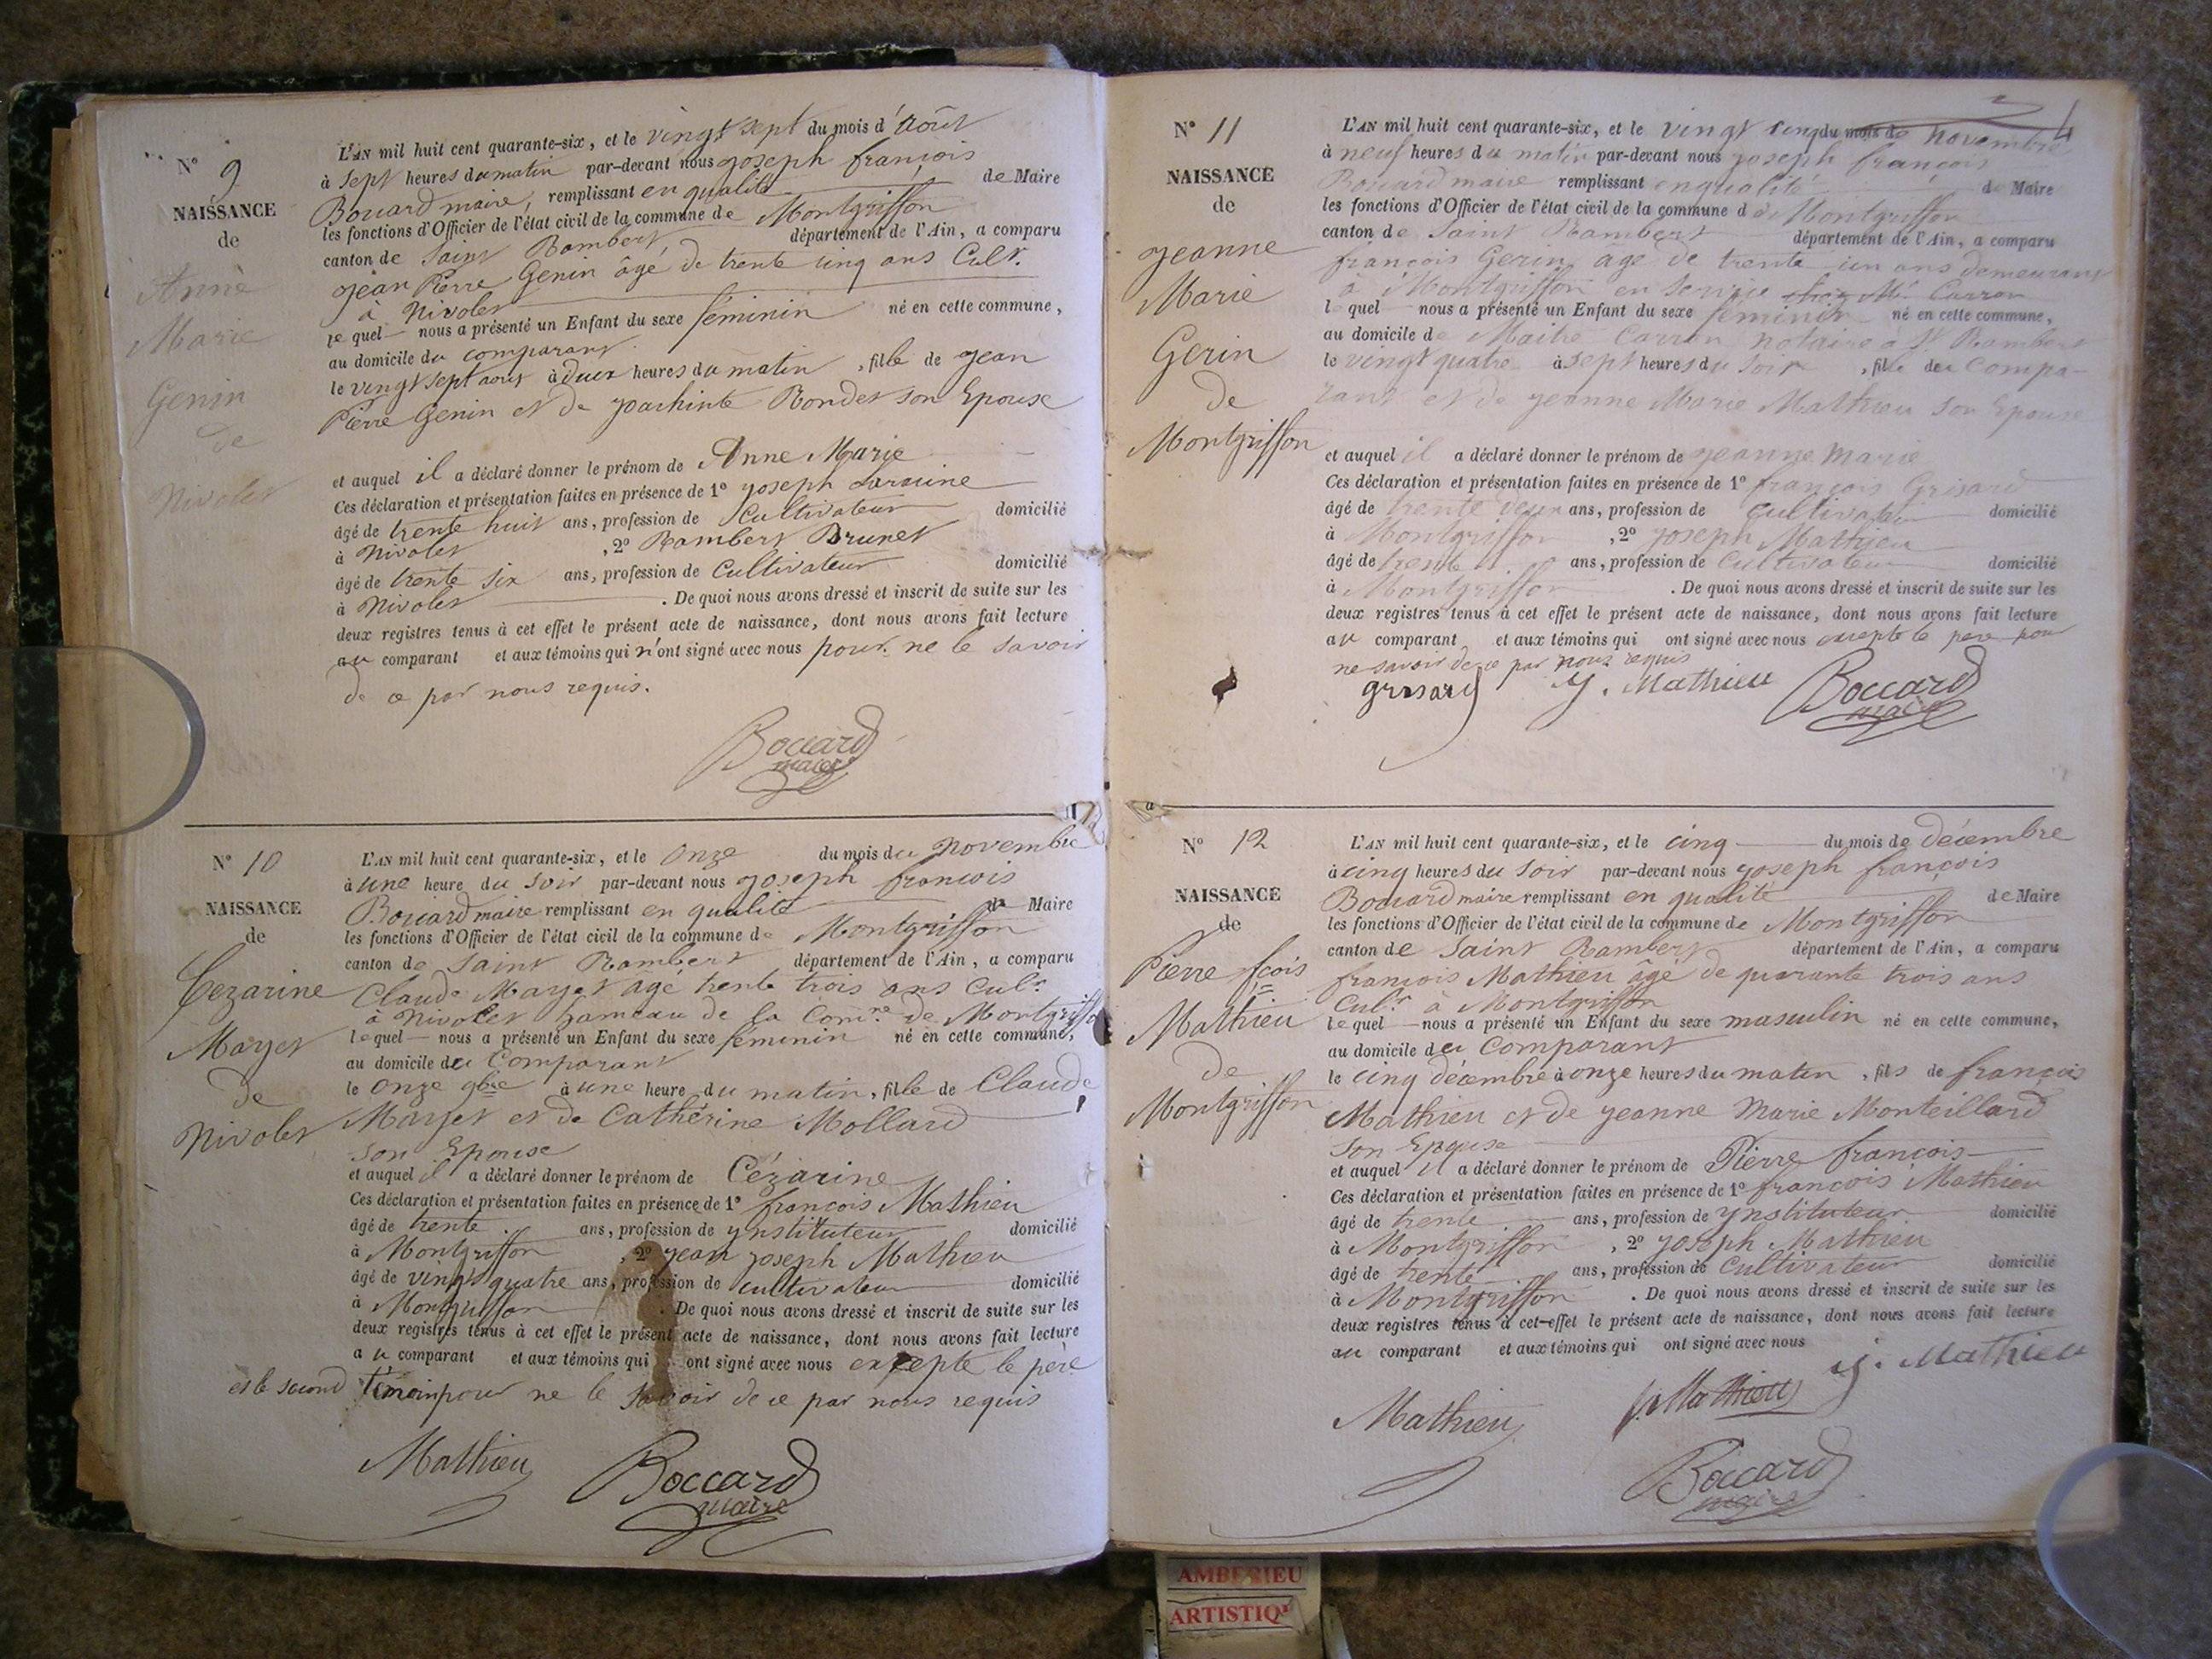 N° 9
NAISSANCE
de
Anne
Marie
Genin
de
Nivolet
L'AN mil huit cent quarante-six, et le vingt sept du mois d'Août
à sept heures du matin par-devant nous joseph françois
Boccard maire, remplissant en qualité de Maire
les fonctions d'Officier de l'état civil de la commune de Montgriffon
canton de Saint Rambert département de l'Ain, a comparu
jean Pierre Genin âgé de trente cinq ans Cult.r
à Nivolet
le quel nous a présenté un Enfant du sexe féminin né en cette commune,
au domicile du comparant
le vingt sept août à deux heures du matin, fille de jean
Pierre Genin et de joachinte Rondet son Epouse
et auquel il a déclaré donner le prénom de Anne Marie
Ces déclaration et présentation faites en présence de 1° joseph
âgé de trente huit ans, profession de Cultivateur domicilié
à Nivolet, 2° Rambert Brunet
âgé de trente six ans, profession de Cultivateur domicilié
à Nivolet. De quoi nous avons dressé et inscrit de suite sur les
deux registres tenus à cet effet le présent acte de naissance, dont nous avons fait lecture
au comparant et aux témoins qui n'ont signé avec nous pour ne le savoir
de ce par nous requis.
Boccard
maire
N° 10
NAISSANCE
de
Cezarine
Mayet
de
Nivolet
L'AN mil huit cent quarante-six, et le onze du mois du novembre
à une heure du soir par-devant nous joseph françois
Boccard maire remplissant en qualité de Maire
les fonctions d'Officier de l'état civil de la commune de Montgriffon
canton de Saint Rambert département de l'Ain, a comparu
Claude Mayet âgé trente trois ans Cult.r
à Nivolet hameau de la Com.ne de Montgriffon
le quel nous a présenté un Enfant du sexe féminin né en cette commune,
au domicile du Comparant
le onze 9bre à une heure du matin, fille de Claude
Mayet et de Cathérine Mollard
son Epouse
et auquel il a déclaré donner le prénom de Cézarine
Ces déclaration et présentation faites en présence de 1° françois Mathieu
âgé de trente ans, profession de ynstituteur domicilié
à Montgriffon, 2° jean joseph Mathieu
âgé de vingt quatre ans, profession de cultivateur domicilié
à Montgriffon. De quoi nous avons dressé et inscrit de suite sur les
deux registres tenus à cet effet le présent acte de naissance, dont nous avons fait lecture
au comparant et aux témoins qui ont signé avec nous excepte le père
et le second témoin pour ne le savoir de ce par nous requis
Mathieu Boccard
maire
4
N° 11
NAISSANCE
de
jeanne
Marie
Gerin
de
Montgriffon
L'AN mil huit cent quarante-six, et le vingt cinq du mois de novembre
à neuf heures du matin par-devant nous joseph françois
Boccard maire remplissant en qualité de Maire
les fonctions d'Officier de l'état civil de la commune de Montgriffon
canton de Saint Rambert département de l'Ain, a comparu
françois Gerin âgé de trente un ans demeurant
à Montgriffon en service chez Me. Carron
le quel nous a présenté un Enfant du sexe féminin né en cette commune,
au domicile de Maitre Carron notaire à St Rambert
le vingt quatre à sept heures du soir, fille du Compa-
rant et de jeanne Marie Mathieu son Epouse
et auquel il a déclaré donner le prénom de jeanne Marie
Ces déclaration et présentation faites en présence de 1° françois Grisard
âgé de trente deux ans, profession de Cultivateur domicilié
à Montgriffon, 2° joseph Mathieu
âgé de trente ans, profession de Cultivateur domicilié
à Montgriffon. De quoi nous avons dressé et inscrit de suite sur les
deux registres tenus à cet effet le présent acte de naissance, dont nous avons fait lecture
au comparant et aux témoins qui ont signé avec nous excepte le pere pour
ne savoir de ce par nous requis
grisard j. Mathieu Boccard
maire
N° 12
NAISSANCE
de
Pierre fçois
Mathieu
de
Montgriffon
L'AN mil huit cent quarante-six, et le cinq du mois de décembre
à cinq heures du soir par-devant nous joseph françois
Boccard maire remplissant en qualité de Maire
les fonctions d'Officier de l'état civil de la commune de Montgriffon
canton de Saint Rambert département de l'Ain, a comparu
françois Mathieu âgé de quarante trois ans
Cult.r à Montgriffon
le quel nous a présenté un Enfant du sexe masculin né en cette commune,
au domicile du Comparant
le cinq décembre à onze heures du matin, fils de françois
Mathieu et de jeanne Marie Monteillard
son Epouse
et auquel il a déclaré donner le prénom de Pierre françois
Ces déclaration et présentation faites en présence de 1° françois Mathieu
âgé de trente ans, profession de ynstituteur domicilié
à Montgriffon, 2° joseph Mathieu
âgé de trente ans, profession de Cultivateur domicilié
à Montgriffon. De quoi nous avons dressé et inscrit de suite sur les
deux registres tenus à cet effet le présent acte de naissance, dont nous avons fait lecture
au comparant et aux témoins qui ont signé avec nous
j. Mathieu
Mathieu f. Mathieu
Boccard
maire
AMBERIEU
ARTISTIQ